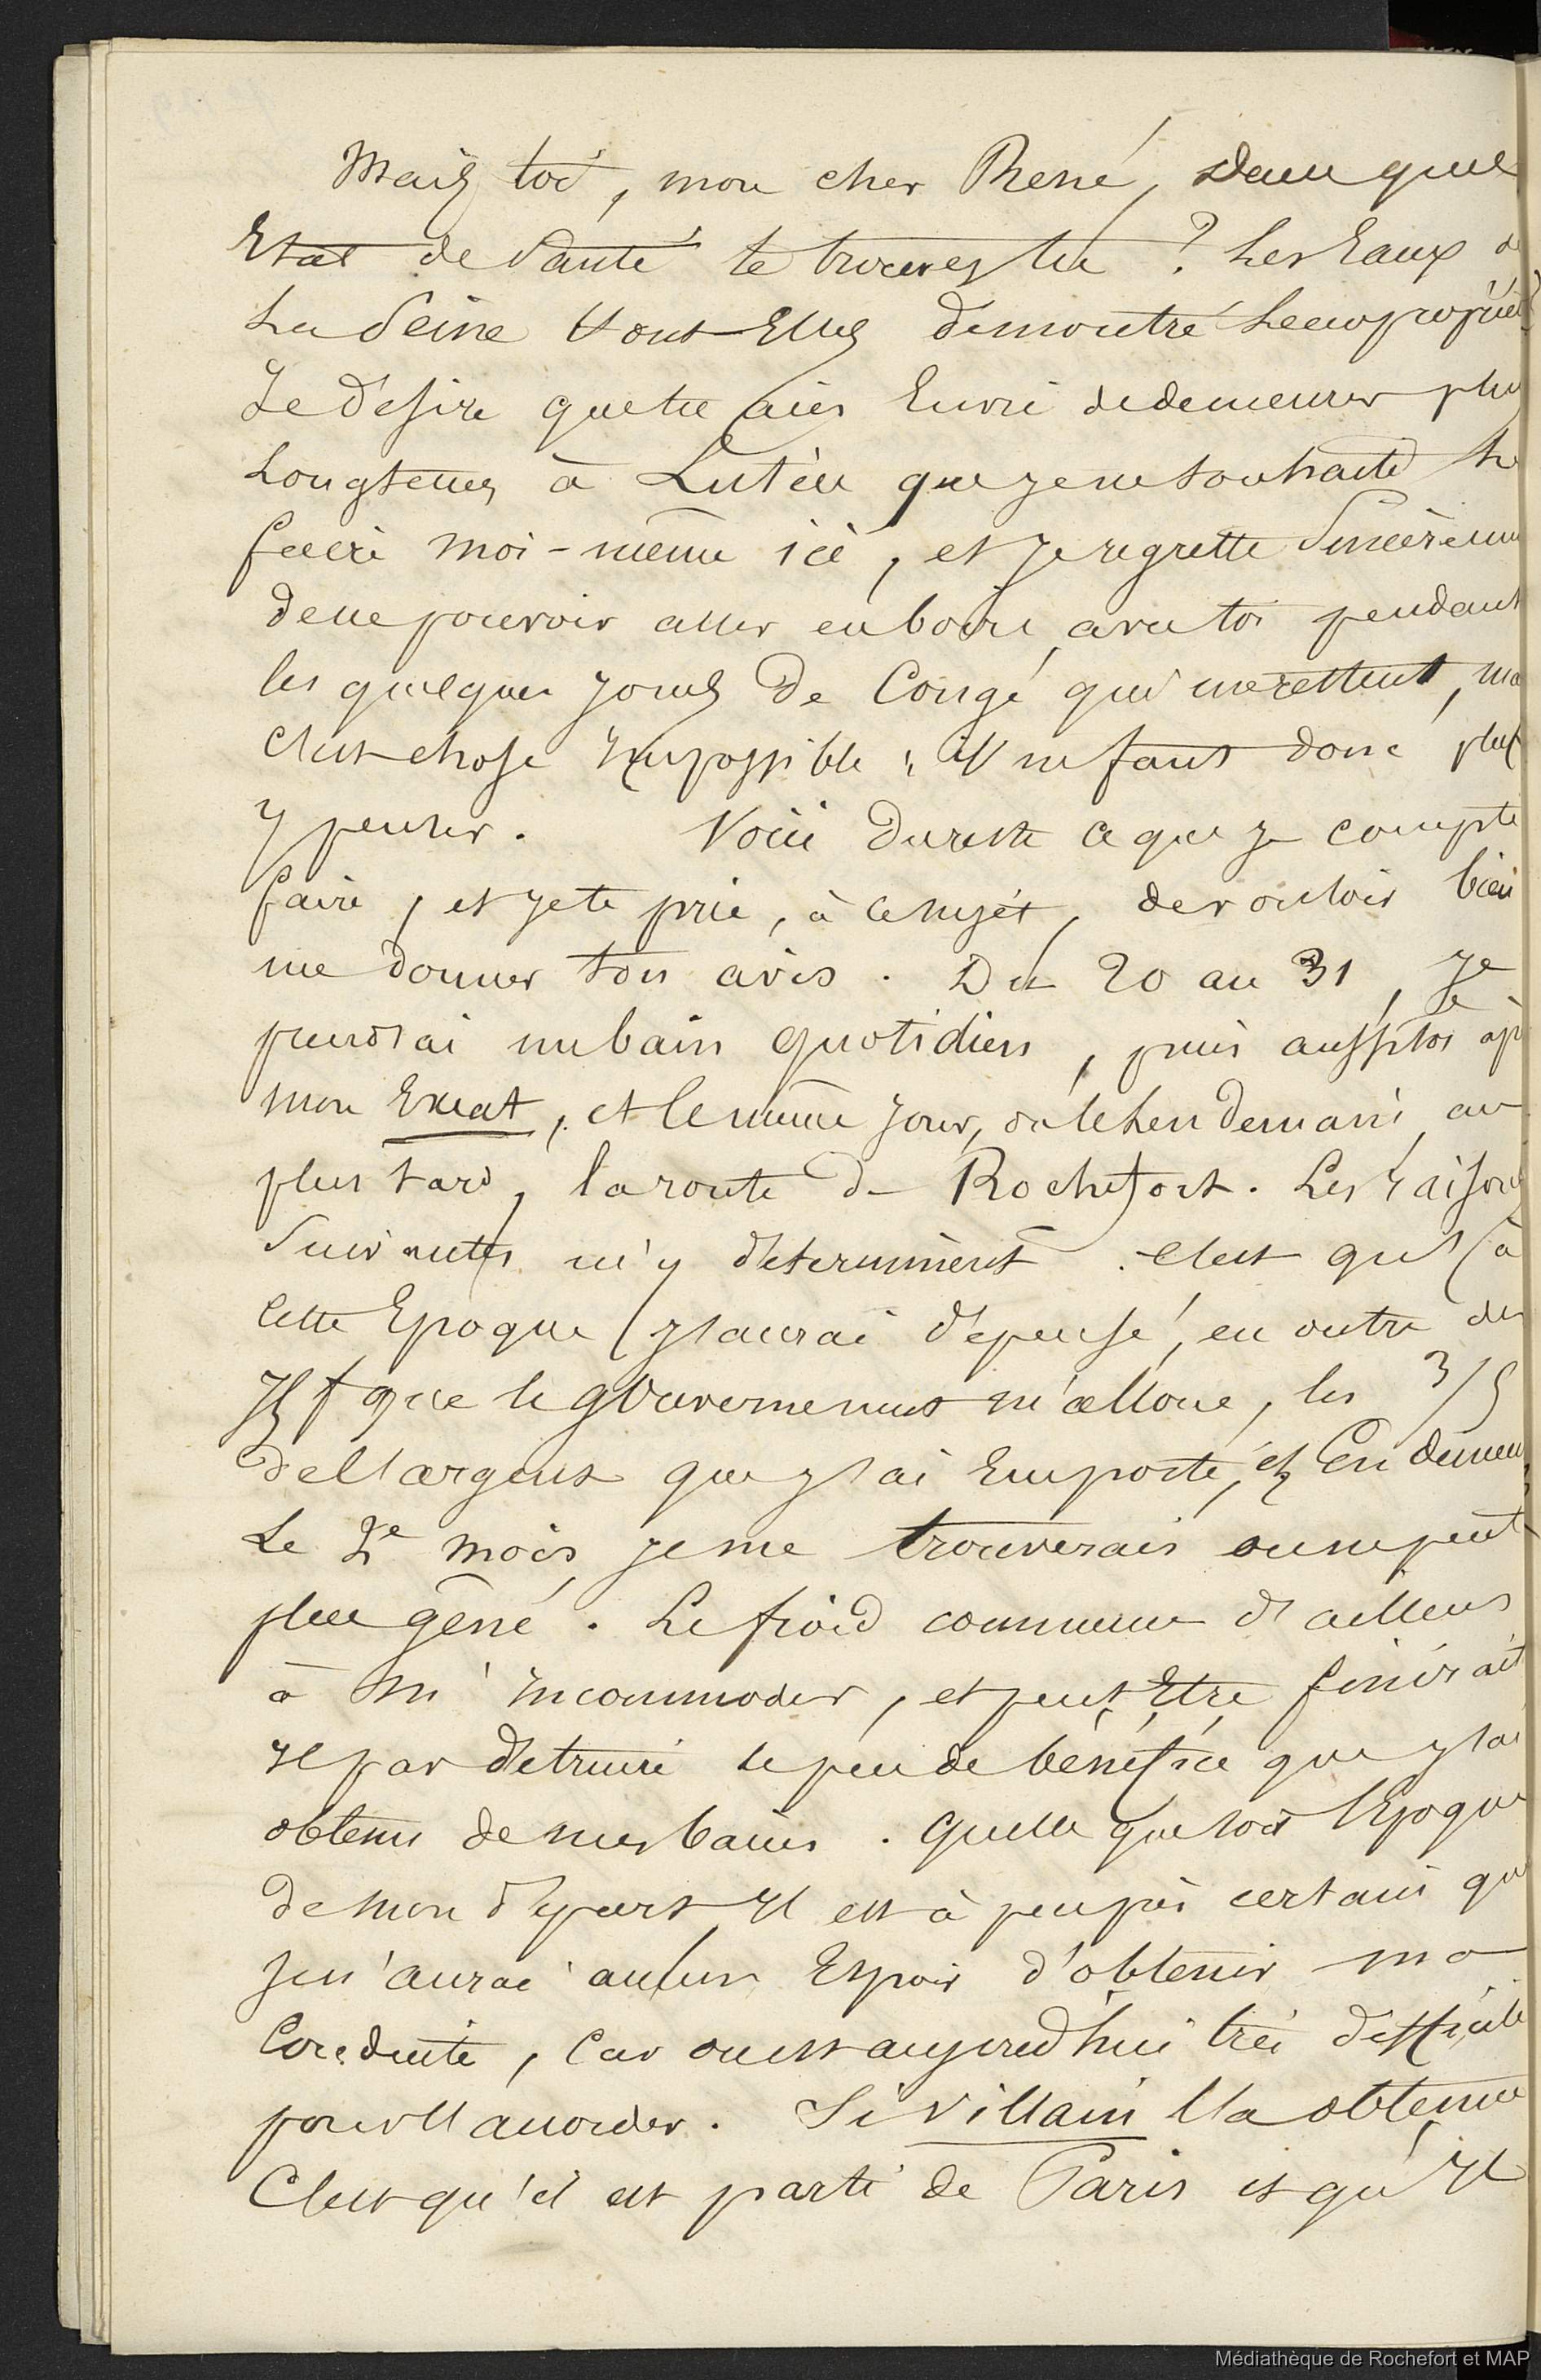 Mais toi, mon cher René, dans quel
Etat de Santé te trouves tu ? Les Eaux de
La Seine t'ont Elles démontré Leurs propriétés
Je Désire que tu aies Envie de demeurer plus
Longtems à Lutèce que je ne souhaite le
faire moi-même ici, et je regrette Sincèrem
de ne pouvoir aller en boire avec toi pendant
les quelques jours de Congé qui me restent, ma
C'est chose Impossible ; il ne faut donc plus
y penser. Voici du reste ce que je compte
faire, et je te prie, à ce sujet, de vouloir bien
me donner ton avis. Du 20 au 31, Je
prendrai un bain quotidien, puis aussitôt ap
mon Exeat, et le même jour, ou le Lendemain au
plus tard, la route de Rochefort. Les raisons
Suivantes m'y déterminent. C'est qu'à
cette Epoque j'aurai dépensé, en outre des
f que le gouvernement m'alloue, les 3/5
de l'argent que j'ai Emporté, et En demeur
Le 2e mois je me trouverais on ne peut
plus gêné. Le froid commence d'ailleurs
à m'incommoder, et peut Etre finirait
Il par détruire le peu de bénéfice que j'ai
obtenu de mes bains. Quelle que soit l'Epoque
de mon départ Il est à peu près certain que
je n'aurai aucun Espoir d'obtenir ma
Conduite, Car on est aujourd'hui très difficile
pour l'accorder. Si Villain l'a obtenue
C'est qu'il est parti de Paris et qu'Il
Médiathèque de Rochefort et MAP